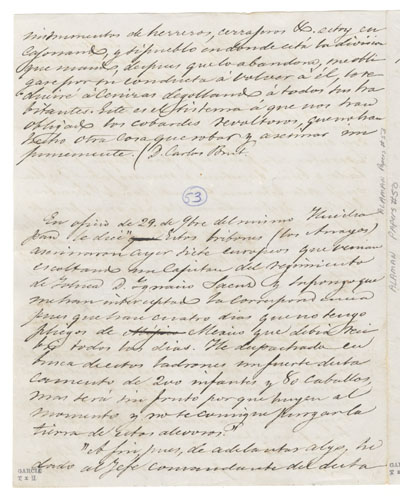 instrumentos de herreros, cerrageros &c. estoy en
y si pueblo en donde está la división
que mando, despues que lo abandone, me obli-
gase por su conducta á volver á él, lo re-
duciré á cenizas degollando á todos sus ha-
bitantes. Este es el sistema á que nos han
obligado los cobardes revoltosos, que no han
hecho otra cosa que robar y asesinar im-
punemente. (D. Carlos
53
En oficio de 29. de 9bre del mismo
le dice " Estos bribones (los
asesinaron ayer siete europeos que venian
escoltando un Capitan del regimiento
de D. Ignacio y supongo que
me han interceptado la correspondencia
pues que hace cuatro dias que no tengo
pliegos de Mexico que debia reci-
bir todos los dias. He despachado en
busca de estos ladrones un fuerte desta-
camento de 200 infantes y 80 caballos,
mas será sin fruto por que huyen al
momento y no se consigue purgar la
tierra de estos alevosos."
"A fin pues, de adelantar algo, he
dado al Jefe comandante del desta-
ALAMAN Papers #53
ALAMAN PAPERS #50
GARCIA